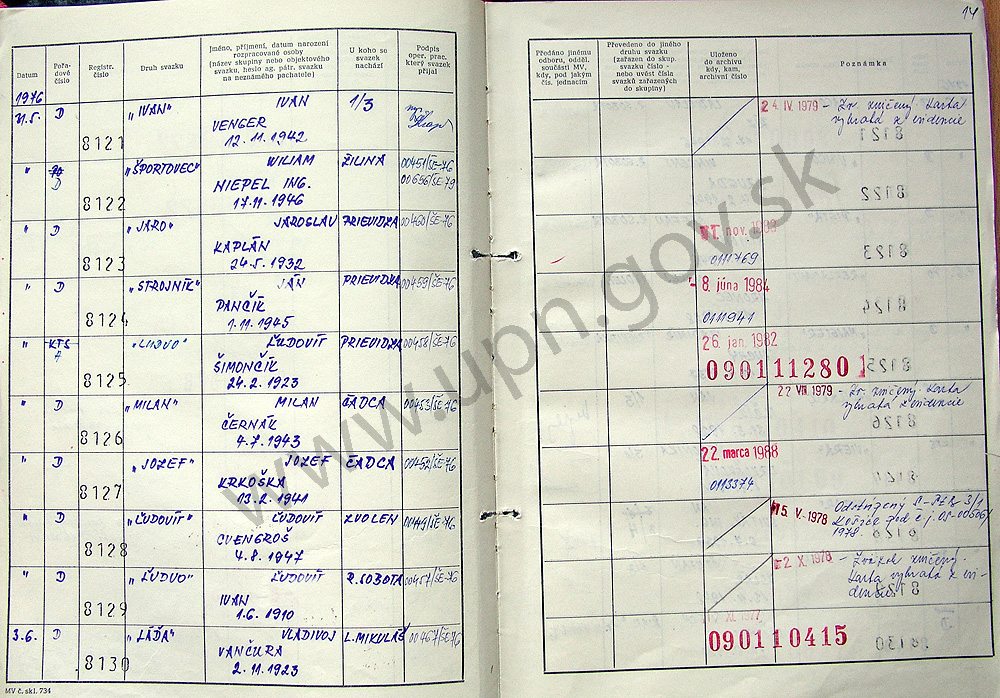 14
Datum
Pořa-
dové
číslo
Registr.
číslo
Druh svazku
Jméno, příjmení, datum narození
rozpracované osoby
(název skupiny nebo objektového
svazku, heslo ag. pátr. svazku
na neznámého pachatele)
U koho se
svazek
nachází
Podpis
oper. prac.
který svazek
přijal
Předáno jinému
odboru, odděl.
součásti MV,
kdy, pod jakým
čís. jednacím
Převedeno do jiného
druhu svazku
(zařazen do skup.
svazku číslo -
nebo uvést čísla
svazků zařazených
do skupiny)
Uloženo
do archivu
kdy, kam,
archivní číslo
Poznámka
1976
21.5. D 8121 „IVAN" IVAN 1/3
VENGER
12.11.1942
24. IV. 1979 - Zv. zničený. Karta
vybratá z evidencie
" D 8122 „ŠPORTOVEC" WILIAM ŽILINA 00451/ŠE-76
NIEPEL ING. 00656/ŠE-79
17.11.1946
" D 8123 „JARO" JAROSLAV PRIEVIDZA 00460/ŠE-76
KAPLÁN
24.5.1932
nov.
0111769
" D 8124 „STROJNÍK" JÁN PRIEVIDZA 00459/ŠE-76
PANČÍK
1.11.1945
8. júna 1984
0111941
" KTS 8125 „ĽUDVO" ĽUDOVÍT PRIEVIDZA 00458/ŠE-76
A
ŠIMONČÍK
24.2.1923
26. jan. 1982
090111280
" D 8126 „MILAN" MILAN ČADCA 00453/ŠE-76
ČERNÁK
4.7.1943
22 VIII 1979 - Zv. zničený. Karta
vybratá z evidencie
" D 8127 „JOZEF" JOZEF ČADCA 00452/ŠE-76
KRKOŠKA
13.2.1941
22. marca 1988
0113374
" D 8128 „ĽUDOVÍT" ĽUDOVÍT ZVOLEN 00449/ŠE-76
CVENGROŠ
4.8.1947
15. V. 1978
Košice pod č.j.
1978.
" D 8129 „ĽUDVO" ĽUDOVÍT R.SOBOTA 00457/ŠE-76
IVAN
1.6.1910
2. X. 1978 - Zväzok zničený.
Karta vybratá z evi-
dencie.
3.6. D 8130 „LÁĎA" VLADIVOJ L.MIKULÁŠ 00467/ŠE-76
VANČURA
2.11.1923
XI. 1977
090110415
MV č. skl. 734
www.upn.gov.sk